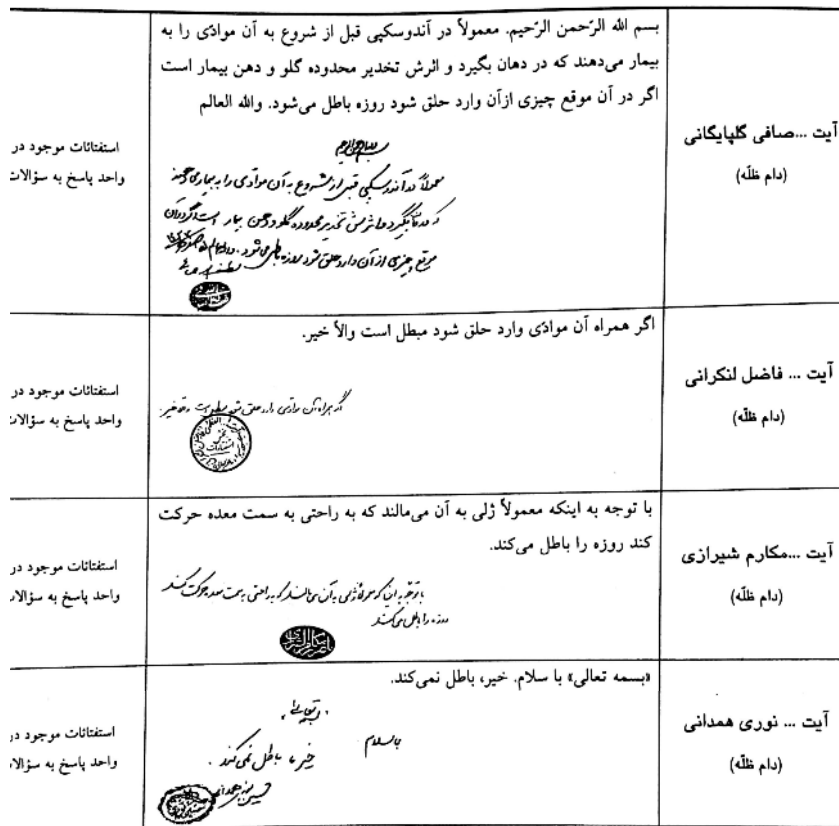 آیت ...صافی گلپایگانی
(دام ظلّه)
بسم الله الرّحمن الرّحیم. معمولاً در آندوسکپی قبل از شروع به آن موادّی را به
بیمار می‌دهند که در دهان بگیرد و اثرش تخدیر محدوده گلو و دهن بیمار است
اگر در آن موقع چیزی ازآن وارد حلق شود روزه باطل می‌شود. والله العالم
بسم الله الرحمن الرحیم
معمولاً در آندوسکپی قبل از شروع به آن موادّی را به بیمار می‌دهند
که در دهان بگیرد و اثرش تخدیر محدوده گلو و دهن بیمار است اگر در آن
موقع چیزی از آن وارد حلق شود روزه باطل می‌شود. والله العالم
استفتائات موجود در
واحد پاسخ به سؤالات
آیت ... فاضل لنکرانی
(دام ظلّه)
اگر همراه آن موادّی وارد حلق شود مبطل است والاّ خیر.
اگر همراه آن موادی وارد حلق شود مبطل است والا خیر.
استفتائات موجود در
واحد پاسخ به سؤالات
آیت ...مکارم شیرازی
(دام ظلّه)
با توجه به اینکه معمولاً ژلی به آن می‌مالند که به راحتی به سمت معده حرکت
کند روزه را باطل می‌کند.
با توجه به این که معمولاً ژلی به آن می‌مالند که به راحتی به سمت معده حرکت کند
روزه را باطل می‌کند
استفتائات موجود در
واحد پاسخ به سؤالات
آیت ... نوری همدانی
(دام ظلّه)
«بسمه تعالی» با سلام. خیر، باطل نمی‌کند.
بسمه تعالی
با سلام
خیر، باطل نمی‌کند.
حسین نوری همدانی
استفتائات موجود در
واحد پاسخ به سؤالات